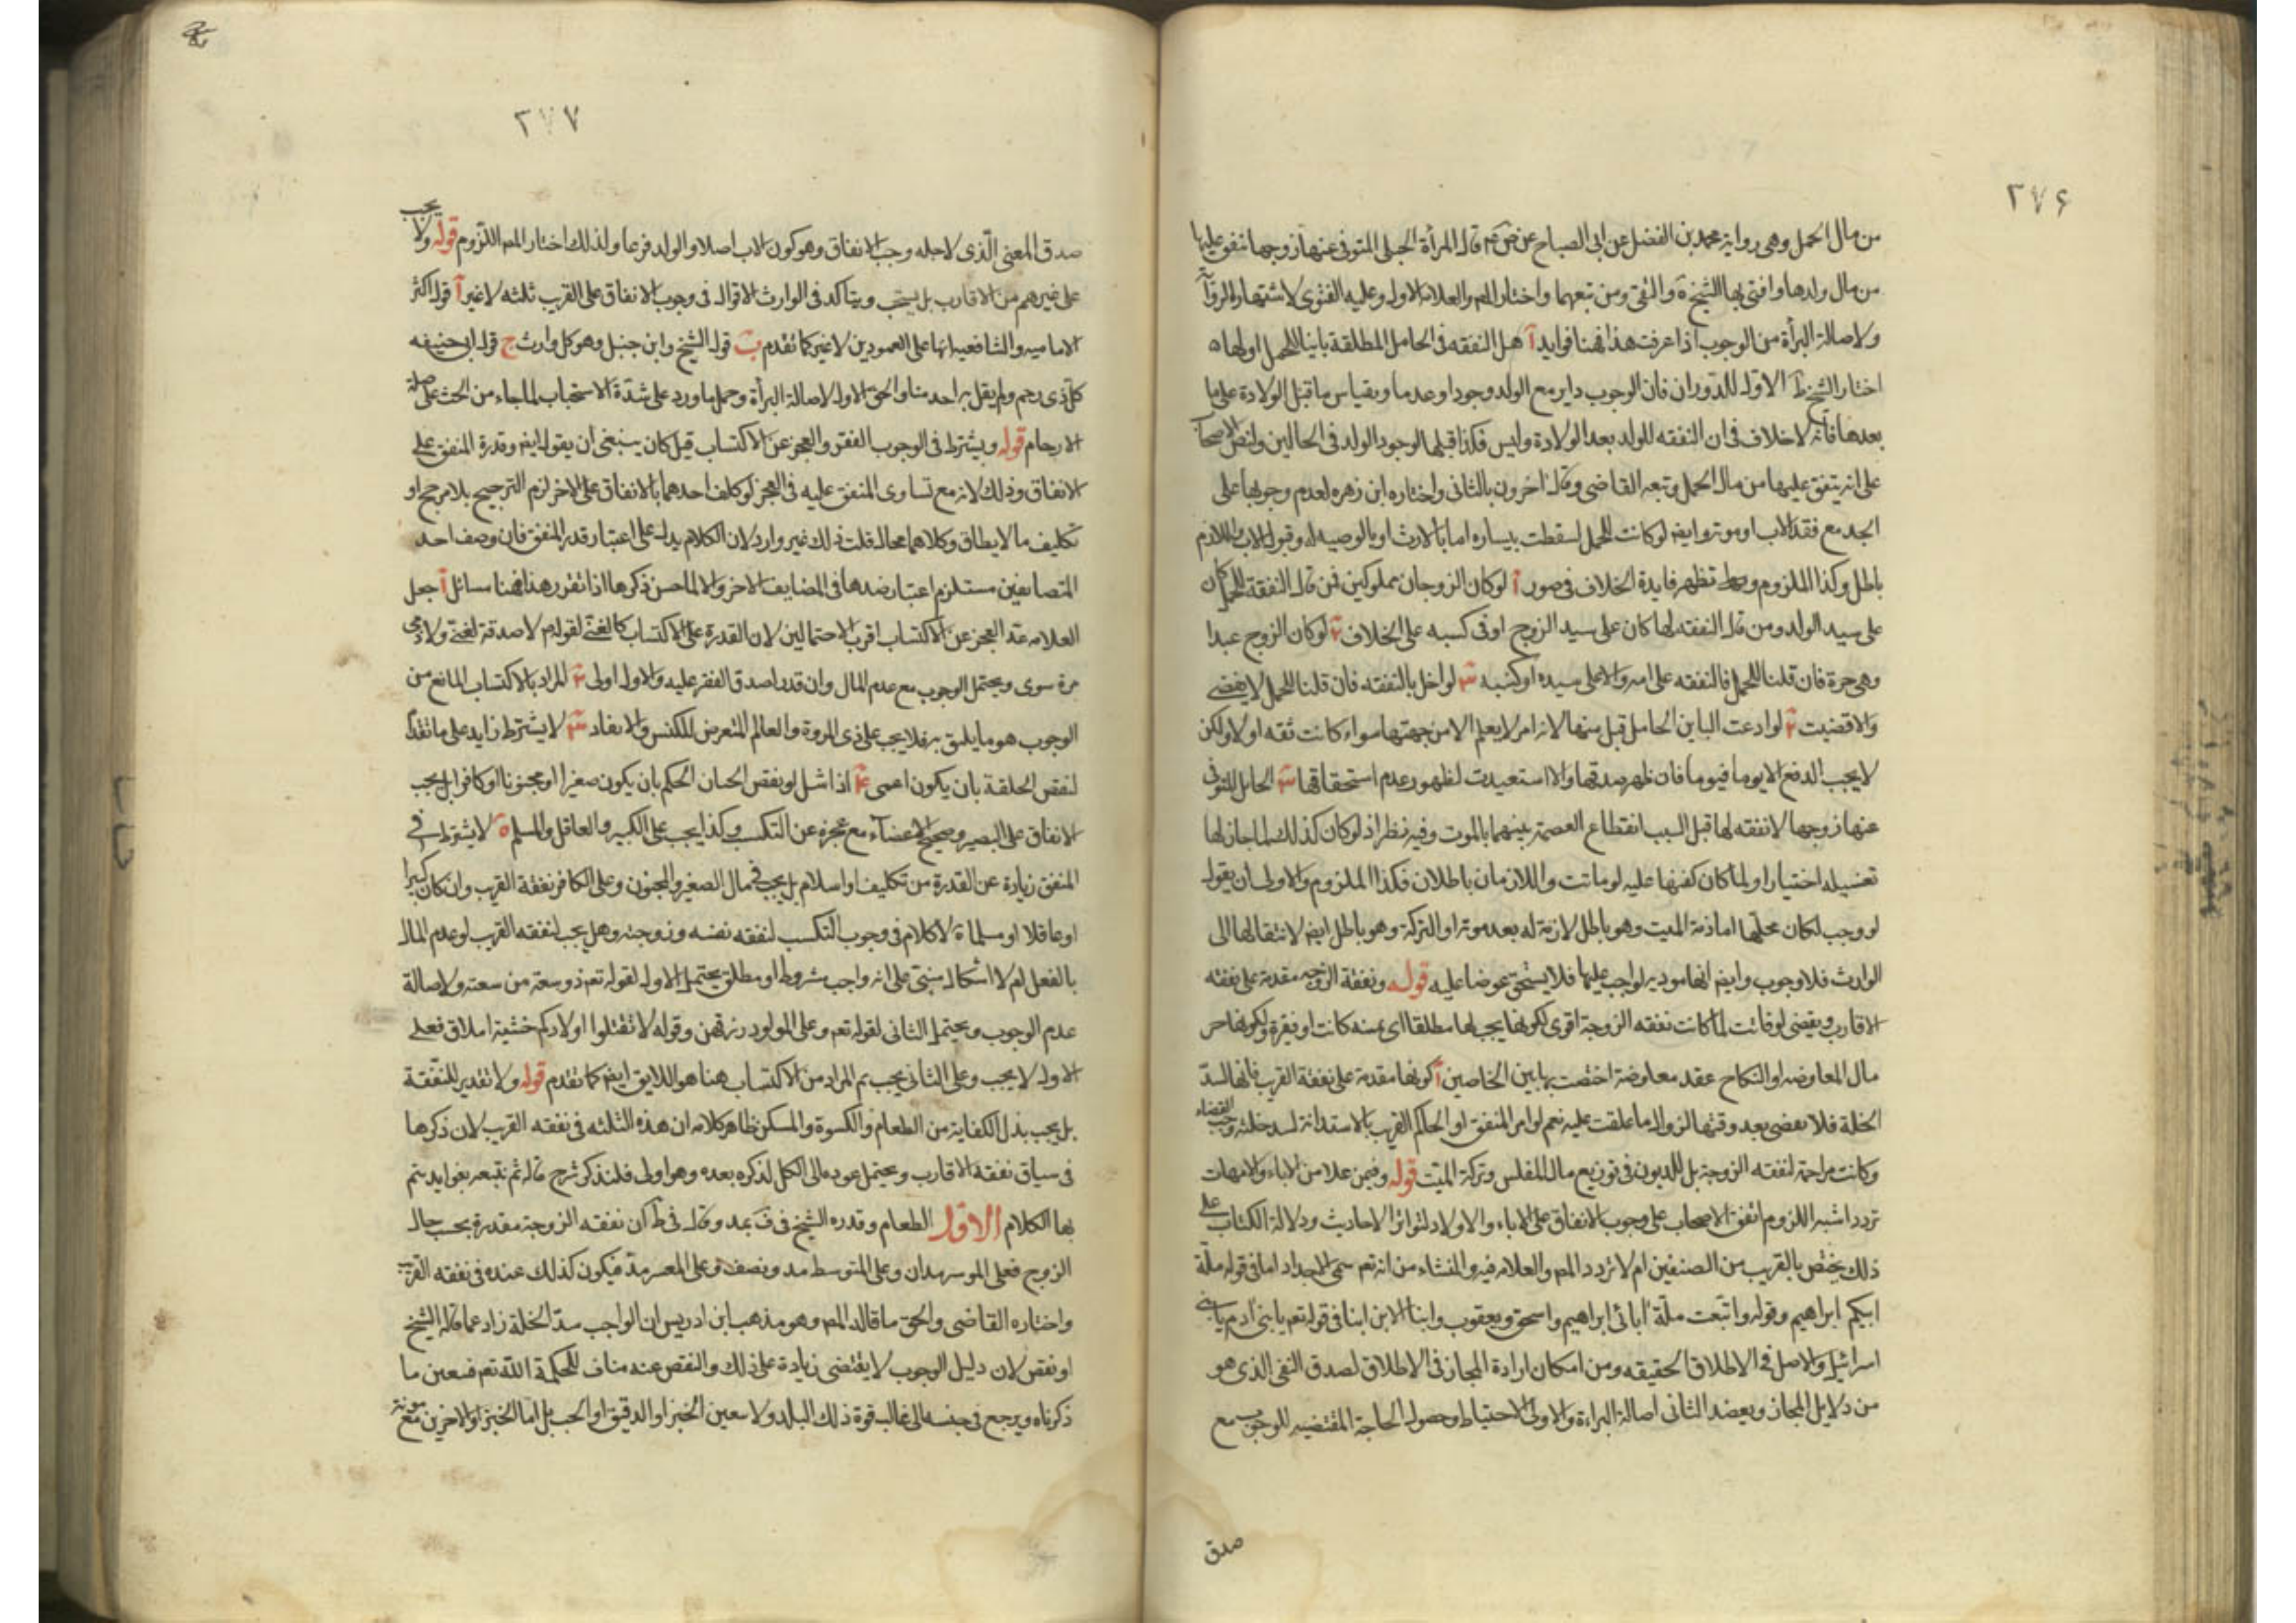 ٢٧۶
من مال الحمل وهى رواية محمد بن الفضل عن ابى الصباح عن ص م قال المرأة الحبلى المتوفى عنها زوجها ينفق عليها
من مال ولدها وافتى بها الشيخ ره والمفيد ومن تبعهما واختار المص والعلامه الاول وعليه الفتوى لاشتهار الرواية
ولاصالة البرأة من الوجوب اذا عرفت هذا فهنا فوايد آ هل النفقه فى الحامل المطلقة باينا للحمل اولها
اختار الشيخ فى ط الاول للدوران فان الوجوب داير مع الولد وجودا وعدما وبقياس ما قبل الولادة على ما
بعدها فانه لاخلاف فى ان النفقه للولد بعد الولادة وليس فكذا قبلها لوجود الولد فى الحالين ولنص الاصحاب
على انه ينفق عليها من مال الحمل وتبعه القاضى وقال اخرون بالثانى واختاره ابن زهره لعدم وجوبها على
الجد مع فقد الاب او موته وايض لو كانت للحمل لسقطت بيساره اما بالارث او بالوصيه له وقبول الاب واللازم
باطل وكذا الملزوم وتظهر فايدة الخلاف فى صور آ لوكان الزوجان مملوكين فمن قال النفقة للحمل كان
على سيد الولد ومن قال النفقه لها كان على سيد الزوج اوفى كسبه على الخلاف ٢ لوكان الزوج عبدا
وهى حرة فان قلنا للحمل فالنفقه على امه والا على سيده او كسبه ٣ لو اخل بالنفقه فان قلنا للحمل لا يقضى
والا قضيت ٢ لو ادعت الباين الحامل قبل منها لانه امر لايعلم الا من جهتها سواء كانت ثقه اولا ولكن
لايجب الدفع الا يوما فيوما فان ظهر صدقها والا استعيدت لظهور عدم استحقاقها ٣ الحامل المتوفى
عنها زوجها لانفقه لها قبل السبب انقطاع العصمة بينهما بالموت وفيه نظر اذ لوكان كذلك لما جاز لها
تغسيله اختيارا ولما كان كفنها عليه لو ماتت واللازمان باطلان فكذا الملزوم والاولى ان يقول
لو وجب لكان محلها اما ذمة الميت وهو باطل لا ذمة له بعد موته او التركة وهو باطل ايض لانتقالها الى
الوارث فلا وجوب وايض انها موديه لواجب عليها فلا يستحق عوضا عليه قوله ونفقة الزوجه مقدمة على نفقه
الاقارب ويقضى لو فاتت لما كانت نفقه الزوجة اقوى لكونها يجب لها مطلقا اى غنيه كانت او فقيرة ولكونها من
مال المعاوضه او النكاح عقد معاوضة اختصت بهاتين الخاصين آ كونها مقدمة على نفقة القريب فانها لسد
الخلة فلا يقضى بعد وقتها لزوال ما علقت عليه نعم لو امر المنفق او الحاكم القريب بالاستدانة لسد خلته وجب القضاء
وكانت مزاحمة لنفقه الزوجة بل للديون فى توزيع مال المفلس وتركة الميت قوله وفيمن علا من الاباء والامهات
تردد اشبه اللزوم اتفق الاصحاب على وجوب الانفاق على الاباء والاولاد لتواتر الاحاديث ودلالة الكتاب على
ذلك يختص بالقريب من الصنفين ام لا تردد المص والعلامه فيه والمنشاء من انه تعم سمى الاجداد اما فى قوله ملة
ابيكم ابراهيم وقوله واتبعت ملة آبائى ابراهيم واسحق ويعقوب وابنا الابن ابنا فى قوله تعم يا بنى آدم يا بنى
اسرائيل والاصل فى الاطلاق الحقيقه ومن امكان ارادة المجاز فى الاطلاق لصدق النفى الذى هو
من دلايل المجاز ويعضد الثانى اصالة البراءة والاولى الاحتياط وحصول الحاجة المقتضيه للوجوب مع
صدق
٢٧٧
صدق المعنى الذى لاجله وجب الانفاق وهو كون الاب اصلا والولد فرعا ولذلك اختار المص اللزوم قوله ولا يجب
على غيرهم من الاقارب بل يستحب ويتاكد فى الوارث الاقوال فى وجوب الانفاق على القريب ثلثه لاغير آ قول اكثر
الاماميه والشافعيه انها على العمودين لاغير كما تقدم ب قول الشيخ وابن حنبل وهو كل وارث ج قول ابى حنيفه
كل ذى رحم ولم يقل به احد منا والحق الاول لاصالة البرأة وحمل ما ورد على شدة الاستحباب لما جاء من الحث على صلة
الارحام قوله ويشترط فى الوجوب الفقر والعجز عن الاكتساب قيل كان ينبغى ان يقول ايض وقدرة المنفق على
الانفاق وذلك لانه مع تساوى المنفق عليه فى العجز لو كلف احدهما بالانفاق على الاخر لزم الترجيح بلامرجح او
تكليف ما لايطاق وكلاهما محال قلت ذلك غير وارد لان الكلام يدل على اعتبار قدرة المنفق فان وصف احد
المتضايفين مستلزم اعتبار ضدها فى المضايف الاخر والا لما حسن ذكرها اذا تقرر هذا فهنا مسائل آ جعل
العلامه عد العجز عن الاكتساب اقرب الاحتمالين لان القدرة على الاكتساب كالغنى لقوله م لا صدقة لغنى ولا ذى
مرة سوى ويحتمل الوجوب مع عدم المال وان قدر لصدق الفقر عليه والاول اولى ٢ المراد بالاكتساب المانع من
الوجوب هو ما يليق به فلا يجب على ذى المروة والعالم التعرض للكنس والا ٣ لايشترط زايد على ما تقدم
لنقص الخلقة بان يكون اعمى ۴ اذا شل او نقص الحكم بان يكون صغيرا او مجنونا او كافرا بل يجب
الانفاق على البصير وصحيح الاعضاء مع عجزه عن التكسب وكذا يجب على الكبير والعاقل والمسلم ٥ لايشترط فى
المنفق زيادة عن القدرة من تكليف او اسلام بل يجب فى مال الصغير والمجنون وعلى الكافر نفقة القريب وان كان كبيرا
او عاقلا او مسلما لا كلام فى وجوب التكسب لنفقه نفسه وزوجته وهل يجب لنفقه القريب لو عدم المال
بالفعل لم لا اشكال مبنى على انه واجب مشروط او مطلق يحتمل الاول لقوله تعم ذو سعة من سعته ولاصالة
عدم الوجوب ويحتمل الثانى لقوله تعم وعلى المولود رزقهن وقوله لا تقتلوا اولادكم خشية املاق فعلى
الاول لايجب وعلى الثانى يجب ثم المراد من الاكتساب هنا هو اللايق ايض كما تقدم قوله ولا تقدير للنفقة
بل يجب بذل الكفاية من الطعام والكسوة والمسكن ظاهر كلامه ان هذه الثلثه فى نفقه القريب لان ذكرها
فى سياق نفقه الاقارب ويحتمل عوده الى الكل لذكره بعده وهو اولى فلنذكر شرح قاله ثم نتبعه بفوايد يتم
بها الكلام الاول الطعام وقدره الشيخ فى ف بمد وقال فى ط ان نفقه الزوجة مقدرة بحسب حال
الزوج فعلى الموسر مدان وعلى المتوسط مد ونصف وعلى المعسر مد فيكون كذلك عنده فى نفقه القريب
واختاره القاضى والحق ما قاله المص وهو مذهب ابن ادريس ان الواجب سد الخلة زاد عما قاله الشيخ
او نقص لان دليل الوجوب لايقتضى زيادة على ذلك والنقص عنه مناف للحكمة الله تعم فتعين ما
ذكرناه ويرجع فى جنسه الى غالب قوة ذلك البلد ولا يتعين الخبز او الدقيق او الحب بل اما الخبز او الاخرين مع مونة